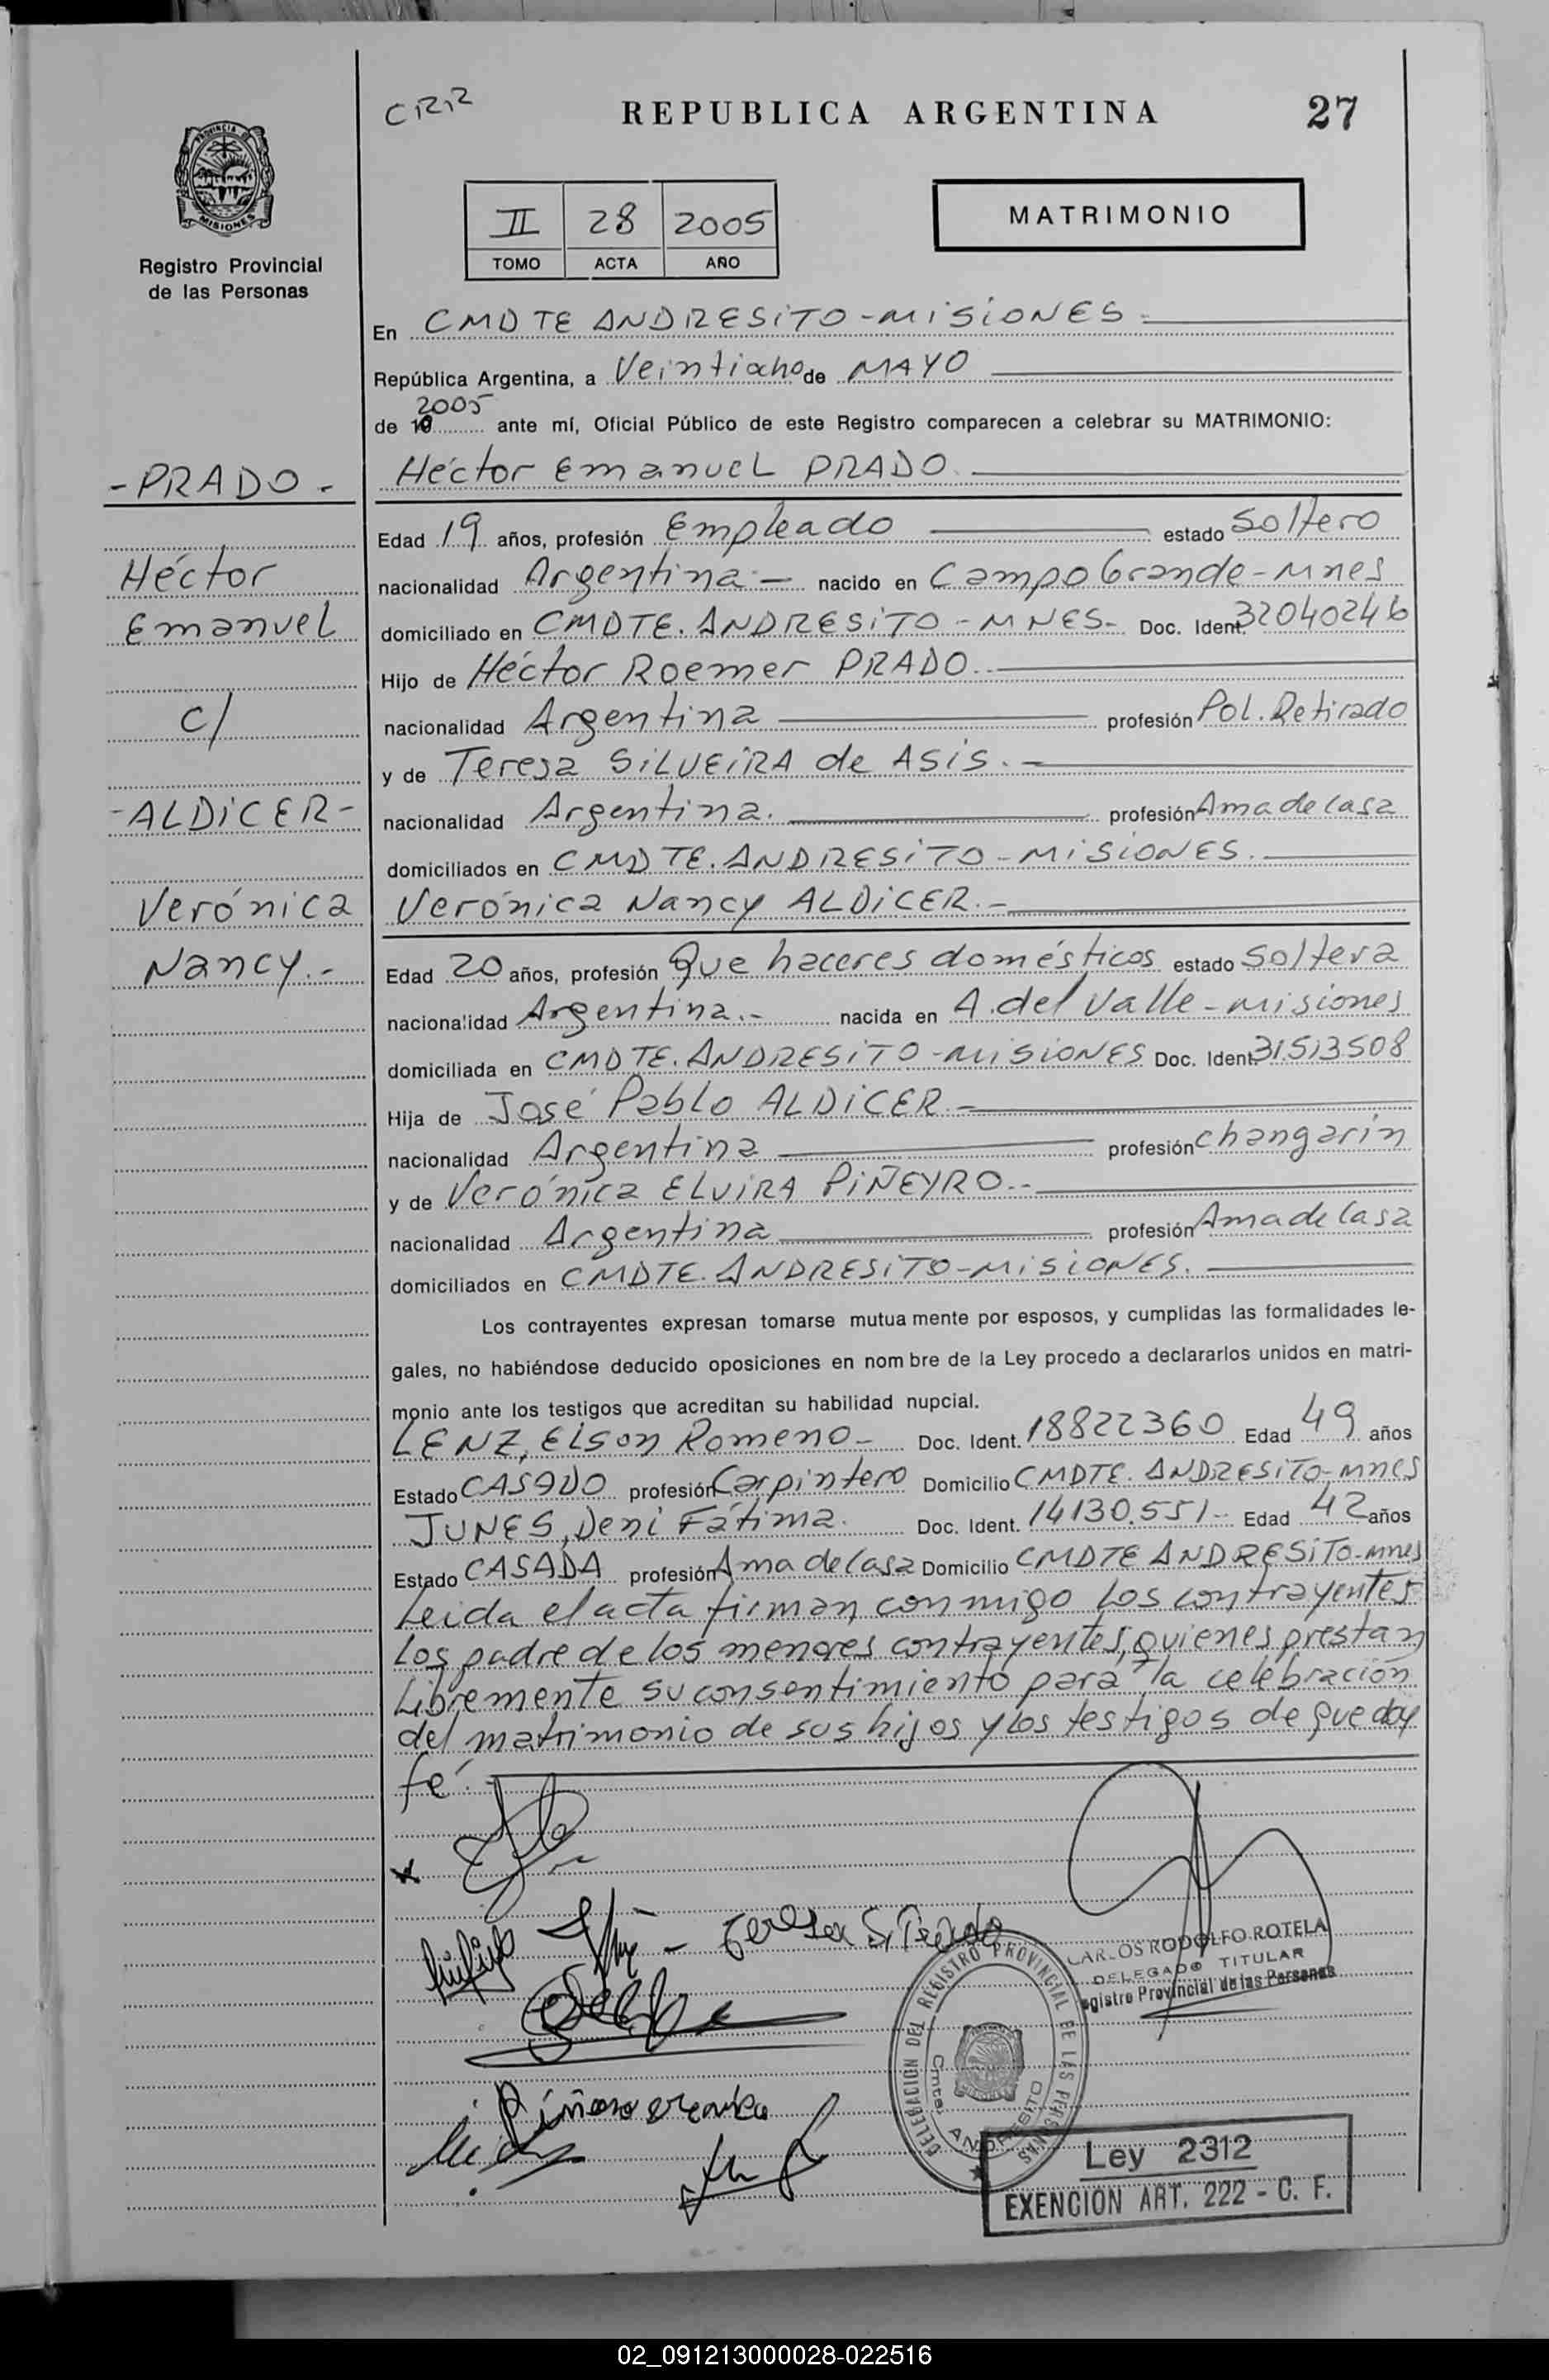 CRR
REPUBLICA ARGENTINA
27
PROVINCIA DE
MISIONES
Registro Provincial
de las Personas
II 28 2005
TOMO ACTA AÑO
MATRIMONIO
En CMDTE ANDRESITO - MISIONES
República Argentina, a Veintiocho de MAYO
2005
de 19 ante mí, Oficial Público de este Registro comparecen a celebrar su MATRIMONIO:
- PRADO -
Héctor Emanuel PRADO
Edad 19 años, profesión Empleado estado Soltero
Héctor
nacionalidad Argentina.- nacido en Campo Grande - Mnes
Emanuel
domiciliado en CMDTE. ANDRESITO - MNES- Doc. Ident. 32040246
Hijo de Héctor Roemer PRADO
c/
nacionalidad Argentina profesión Pol. Retirado
y de Teresa SILVEIRA de ASIS.-
- ALDICER -
nacionalidad Argentina. profesión Ama de casa
domiciliados en CMDTE. ANDRESITO - MISIONES.
Verónica
Verónica Nancy ALDICER.-
Nancy.-
Edad 20 años, profesión Que haceres domésticos estado Soltera
nacionalidad Argentina.- nacida en A. del Valle - Misiones
domiciliada en CMDTE. ANDRESITO - MISIONES Doc. Ident. 31513508
Hija de José Pablo ALDICER.-
nacionalidad Argentina profesión changarín
y de Verónica ELVIRA PIÑEYRO.-
nacionalidad Argentina profesión Ama de casa
domiciliados en CMDTE. ANDRESITO - MISIONES.
Los contrayentes expresan tomarse mutua mente por esposos, y cumplidas las formalidades le-
gales, no habiéndose deducido oposiciones en nom bre de la Ley procedo a declararlos unidos en matri-
monio ante los testigos que acreditan su habilidad nupcial.
LENZ, Elson Romeno - Doc. Ident. 18822360 Edad 49 años
Estado CASADO profesión Carpintero Domicilio CMDTE. ANDRESITO - Mnes
JUNES, Deni Fátima. Doc. Ident. 14130.551- Edad 42 años
Estado CASADA profesión Ama de casa Domicilio CMDTE ANDRESITO - Mnes
Leida el acta firman conmigo los contrayentes
los padre de los menores contrayentes, quienes prestan
Libremente su consentimiento para la celebración
del matrimonio de sus hijos y los testigos de que doy
fé.
Teresa S. Prado
CARLOS RODOLFO ROTELA
DELEGADO TITULAR
egistro Provincial de las Personas
DELEGACION DEL REGISTRO PROVINCIAL DE LAS PERSONAS
Cmte. ANDRESITO
Ley 2312
EXENCION ART. 222 - C. F.
02_091213000028-022516